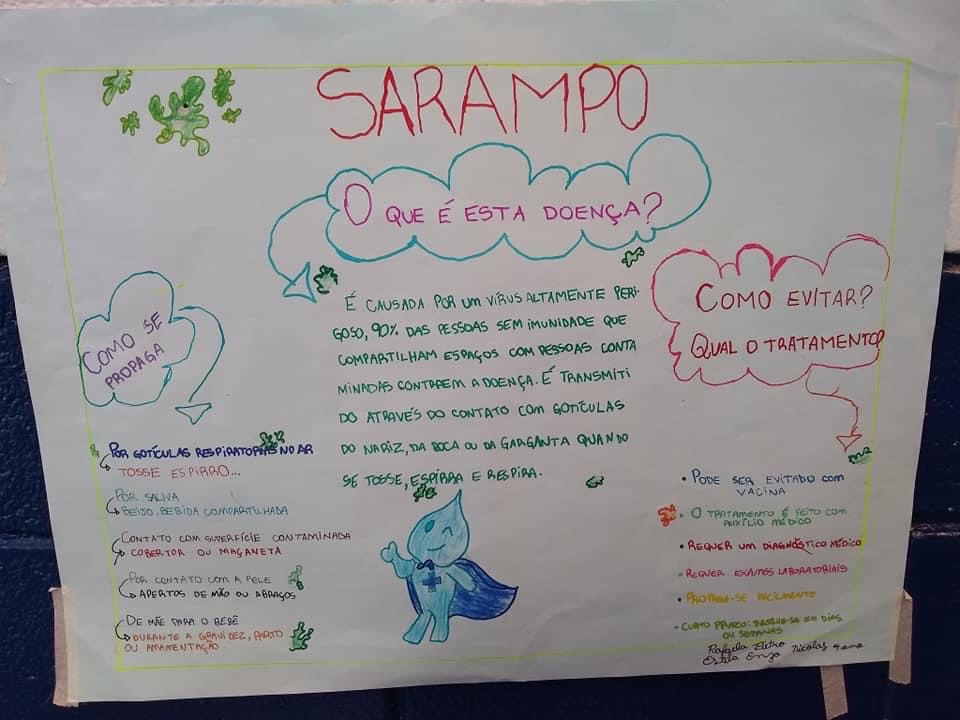 SARAMPO
O QUE É ESTA DOENÇA?
É CAUSADA POR UM VÍRUS ALTAMENTE PERI-
GOSO, 90% DAS PESSOAS SEM IMUNIDADE QUE
COMPARTILHAM ESPAÇOS COM PESSOAS CONTA
MINADAS CONTRAEM A DOENÇA. É TRANSMITI
DO ATRAVÉS DO CONTATO COM GOTÍCULAS
DO NARIZ, DA BOCA OU DA GARGANTA QUANDO
SE TOSSE, ESPIRRA E RESPIRA.
COMO SE
PROPAGA
POR GOTÍCULAS RESPIRATÓRIAS NO AR
TOSSE ESPIRRO...
POR SALIVA
BEIJO, BEBIDA COMPARTILHADA
CONTATO COM SUPERFÍCIE CONTAMINADA
COBERTOR OU MAÇANETA
POR CONTATO COM A PELE
APERTOS DE MÃO OU ABRAÇOS
DE MÃE PARA O BEBÊ
DURANTE A GRAVIDEZ, PARTO
OU AMAMENTAÇÃO.
COMO EVITAR?
QUAL O TRATAMENTO?
• PODE SER EVITADO COM
VACINA
• O TRATAMENTO É FEITO COM
AUXÍLIO MÉDICO
• REQUER UM DIAGNÓSTICO MÉDICO
• REQUER EXAMES LABORATORIAIS
• PROPAGA-SE FACILMENTE
• CURTO PRAZO: RESOLVE-SE EM DIAS
OU SEMANAS
Rafaela Nicolas 4 ano
Estela Enzo